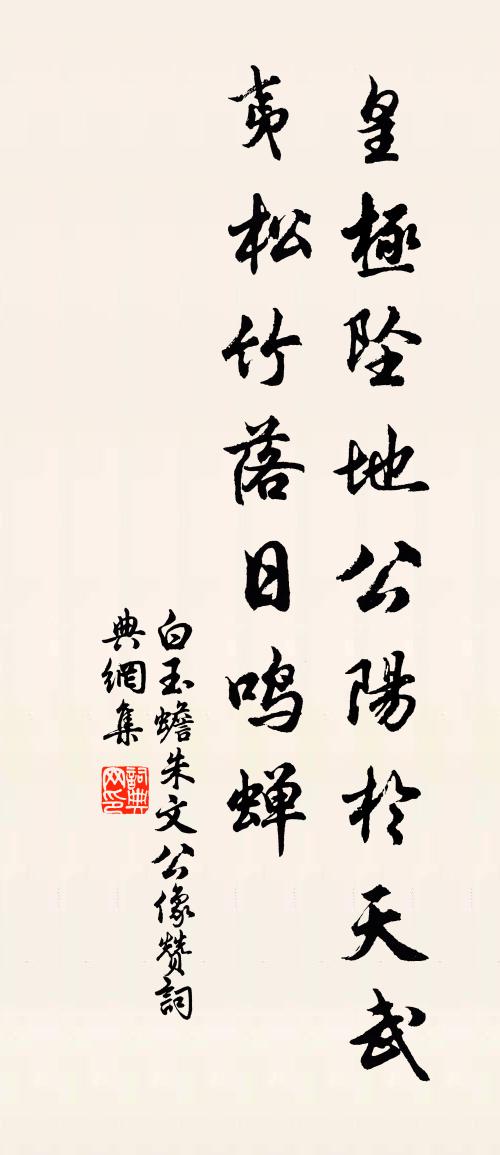 皇極坠地公陽於天武
夷松竹落日鸣蝉
白玉蟾朱文公像贊詞
典網集
詞典
网印